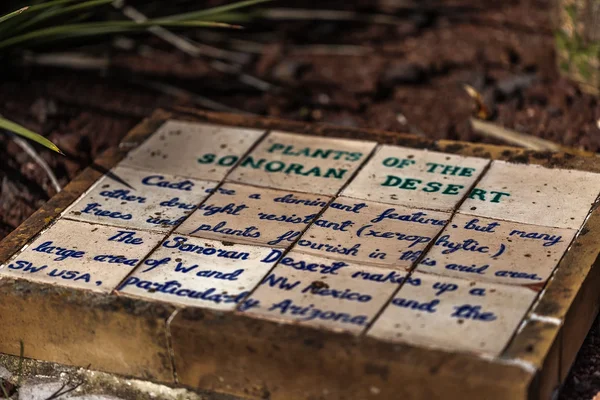 PLANTS OF THE
SONORAN DESERT
Cacti are a dominant feature, but many
other drought resistant (xerophytic)
trees and plants flourish in this arid area.
The Sonoran Desert makes up a
large area of W and NW Mexico and the
SW USA, particularly Arizona